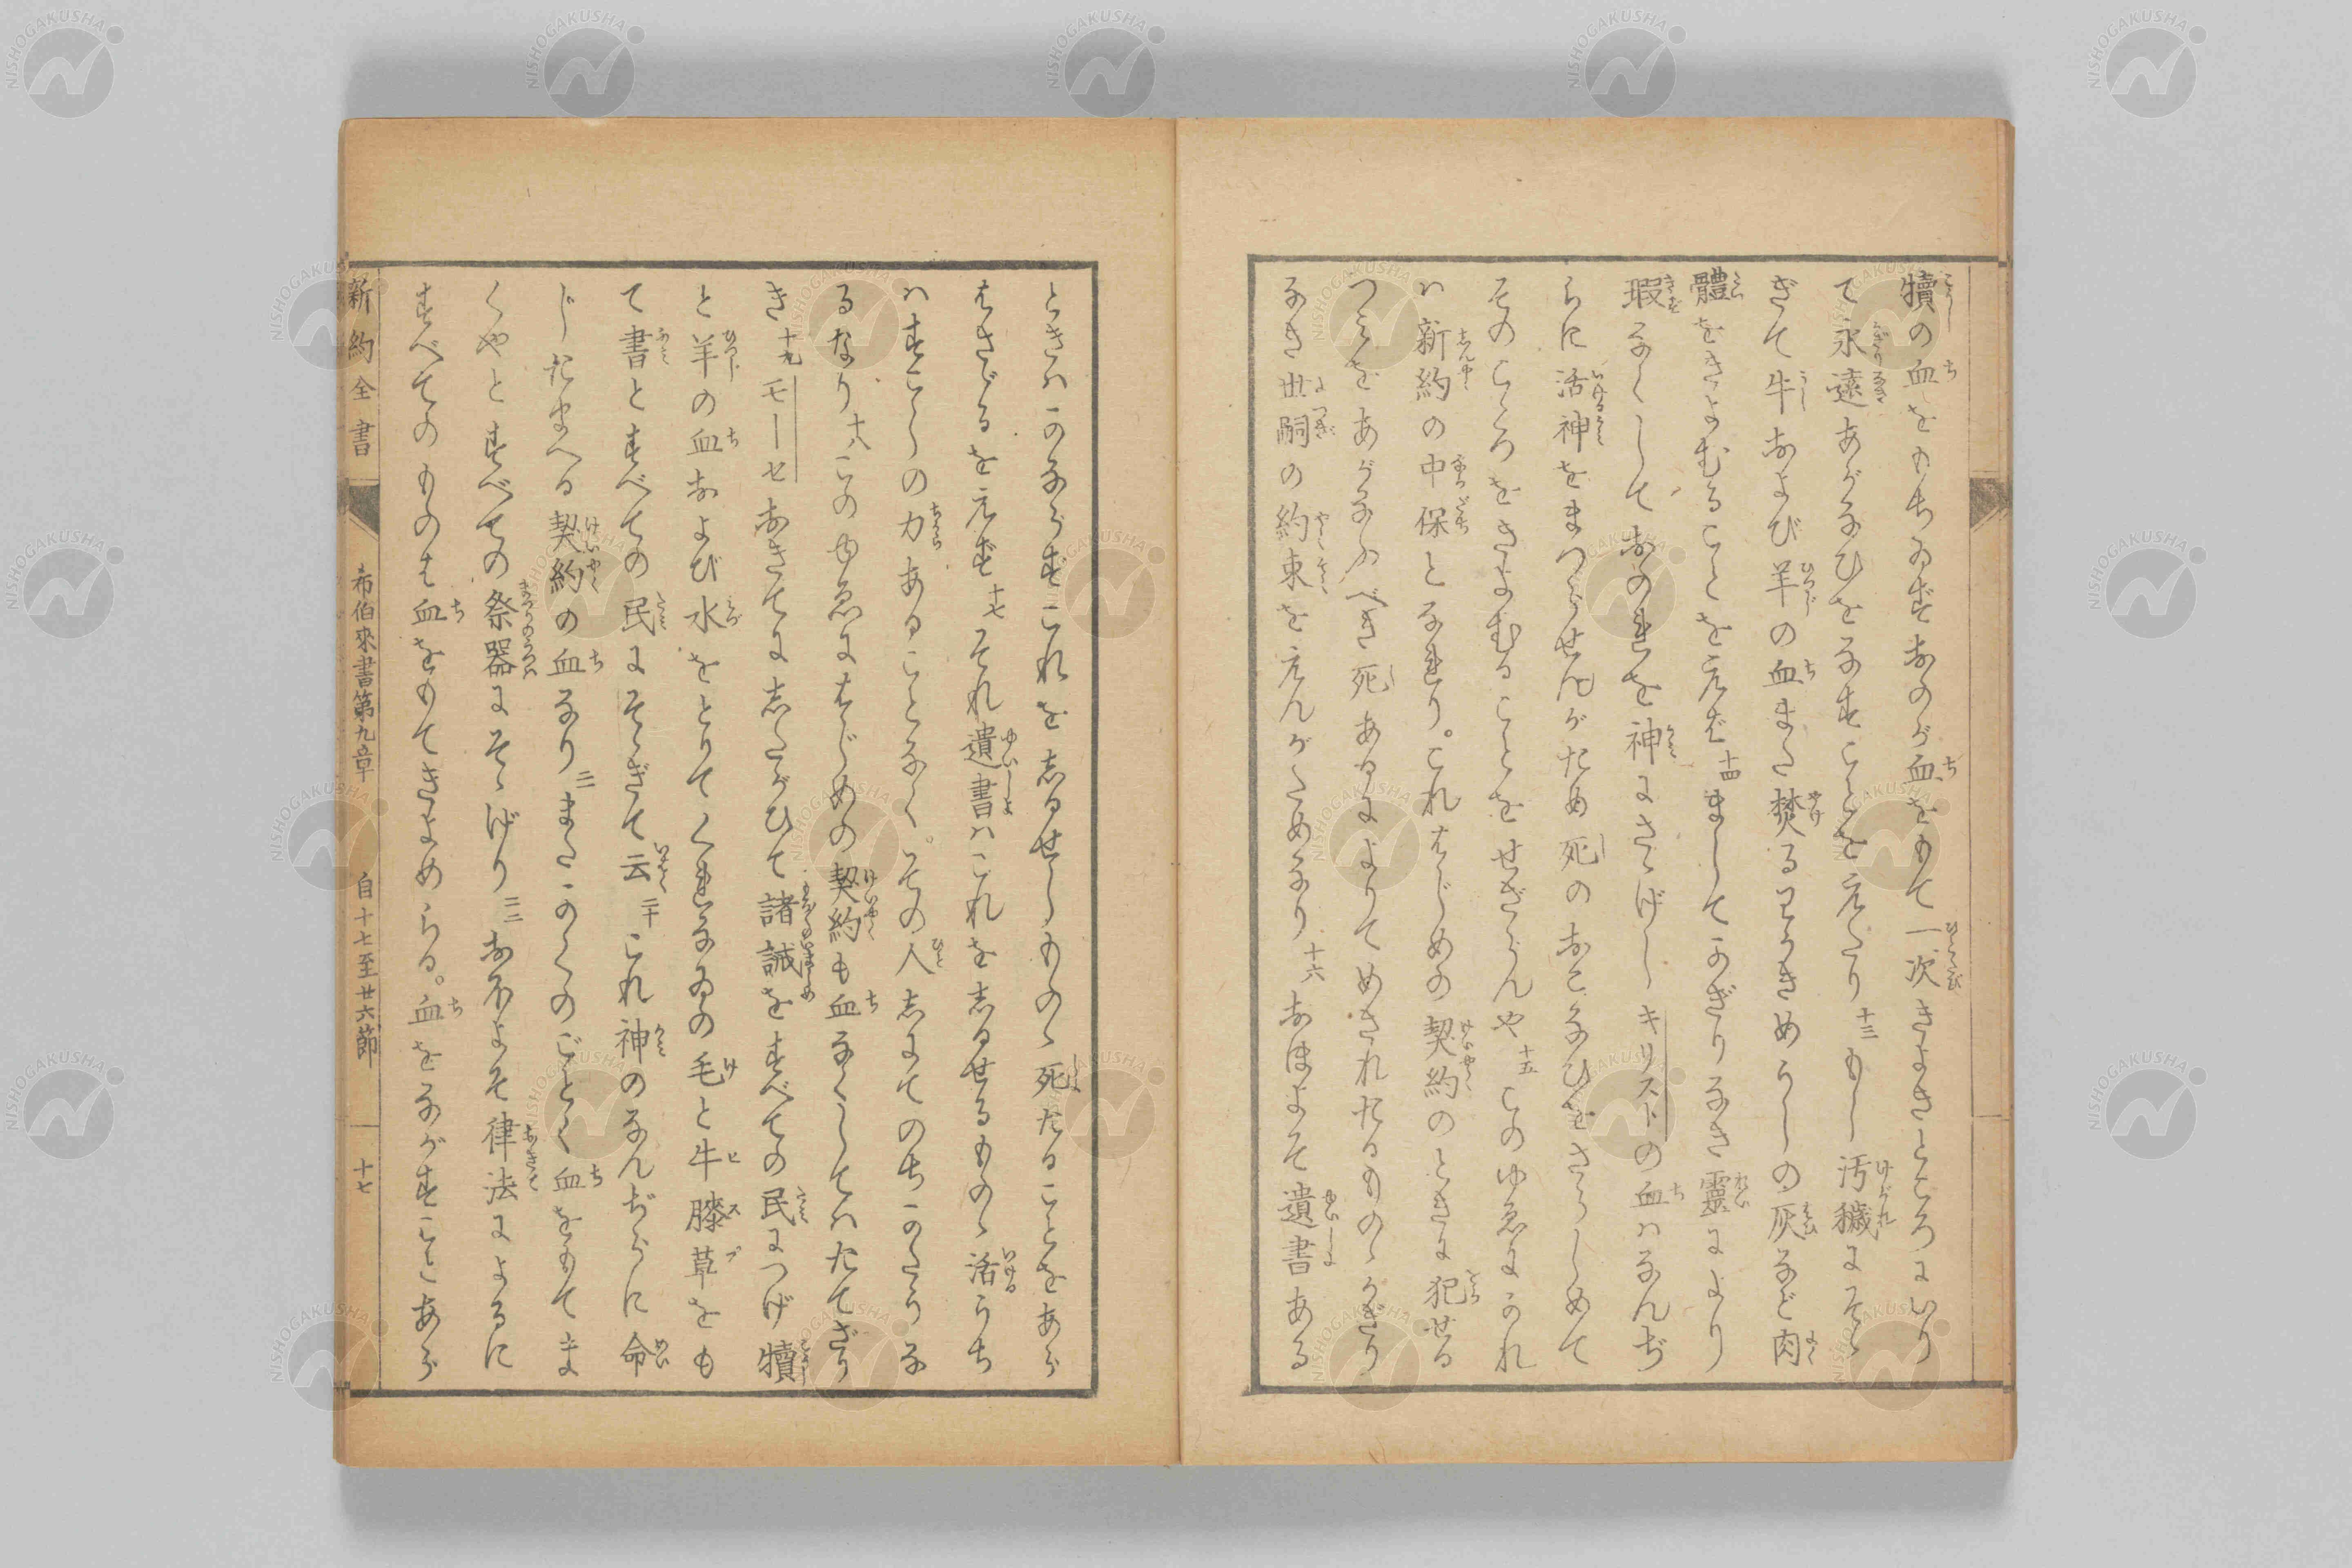 犢の血をもちゐずおのが血をもて一次きよきところにいり
て永遠あがなひをなすことを元たり十三もし汚穢にそゝ
ぎて牛および羊の血また焚るわかきめうしの灰など肉
體をきよむることを元ば十四ましてかぎりなき靈により
瑕なくしておのれを神にさゝげしキリストの血ハなんぢ
らに活神をまつらせんがため死のおこなひをさらしめて
そのこゝろをきよむることをせざらんや十五このゆゑにかれ
ハ新約の中保となれり。これはじめの契約のときに犯せる
つみをあがなふべき死あるによりてめされたるものゝかぎり
なき世嗣の約束を元んがためなり十六おほよそ遺書ある
ときハかならずこれをしるせしものゝ死たることをあら
はさゞるを元ず十七それ遺書ハこれをしるせるものゝ活うち
ハすこしの力あることなく。その人しにてのちかたうな
るなり十八このゆゑにはじめの契約も血なくしてハたてざり
き十九モーセおきてにしたがひて諸誡をすべての民につげ犢
と羊の血および水をとりてくれなゐの毛と牛膝草をも
て書とすべての民にそゝぎて云二十これ神のなんぢらに命
じたまへる契約の血なり二一またかくのごとく血をもてま
くやとすべての祭器にそゝげり二二おほよそ律法によるに
すべてのものは血をもてきよめらる。血をながすことあら
新約全書
希伯來書第九章
自十七至廿六節
十七
NISHOGAKUSHA